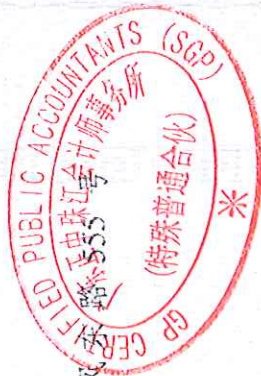 GP CERTIFIED PUBLIC ACCOUNTANTS (SGP)
正中珠江会计师事务所
(特殊普通合伙)
东路 555 号